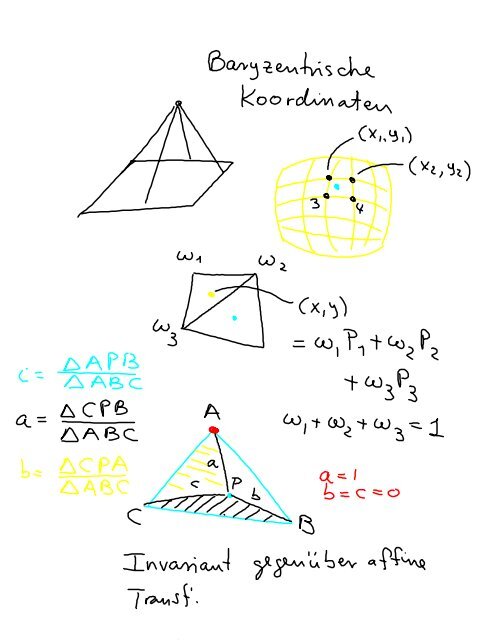 Baryzentrische
Koordinaten
(x₁, y₁)
(x₂, y₂)
3 4
ω₁ ω₂
ω₃
(x, y)
= ω₁P₁ + ω₂P₂
+ ω₃P₃
ω₁ + ω₂ + ω₃ = 1
c = ΔAPB / ΔABC
a = ΔCPB / ΔABC
b = ΔCPA / ΔABC
A
a
c P b
C B
a = 1
b = c = 0
Invariant gegenüber affine
Transf.